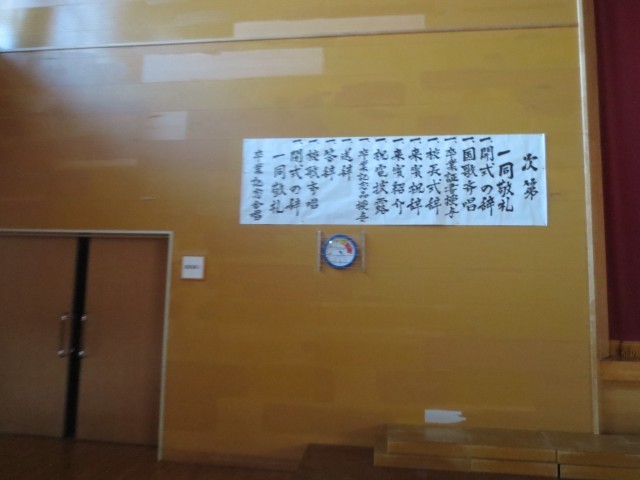 次第
一同敬礼
一、開式の辞
一、国歌斉唱
一、卒業証書授与
一、校長式辞
一、来賓祝辞
一、来賓紹介
一、祝電披露
一、卒業記念品授与
一、送辞
一、答辞
一、校歌斉唱
一、閉式の辞
一同敬礼
卒業記念合唱